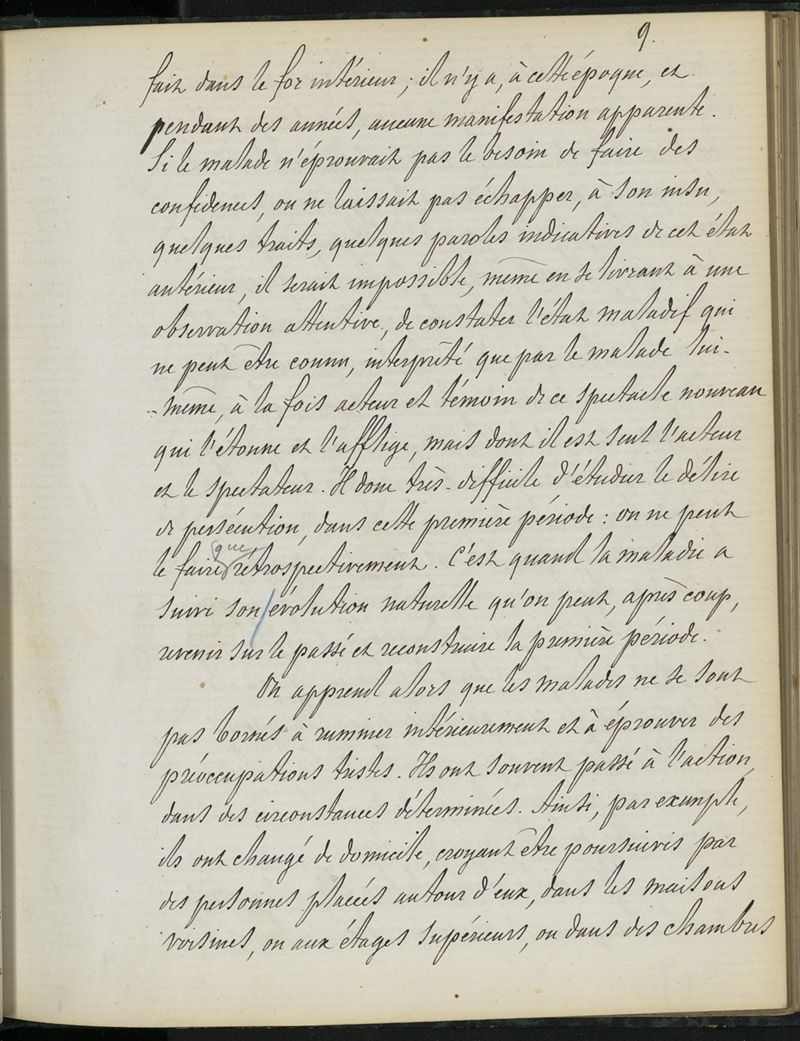 9.
fait dans le for intérieur ; il n'y a, à cette époque, et
pendant des années, aucune manifestation apparente.
Si le malade n'éprouvait pas le besoin de faire des
confidences, ou ne laissait pas échapper, à son insu,
quelques traits, quelques paroles indicatives de cet état
antérieur, il serait impossible, même en se livrant à une
observation attentive, de constater l'état maladif qui
ne peut être connu, interprété que par le malade lui-
-même, à la fois acteur et témoin de ce spectacle nouveau
qui l'étonne et l'afflige, mais dont il est seul l'acteur
et le spectateur. Il donc très-difficile d'étudier le délire
de persécution, dans cette première période : on ne peut
le faire que rétrospectivement. C'est quand la maladie a
suivi son évolution naturelle qu'on peut, après coup,
revenir sur le passé et reconstruire la première période.
On apprend alors que les malades ne se sont
pas bornés à ruminer intérieurement et à éprouver des
préoccupations tristes. Ils ont souvent passé à l'action,
dans des circonstances déterminées. Ainsi, par exemple,
ils ont changé de domicile, croyant être poursuivis par
des personnes placées autour d'eux, dans les maisons
voisines, ou aux étages supérieurs, ou dans des chambres